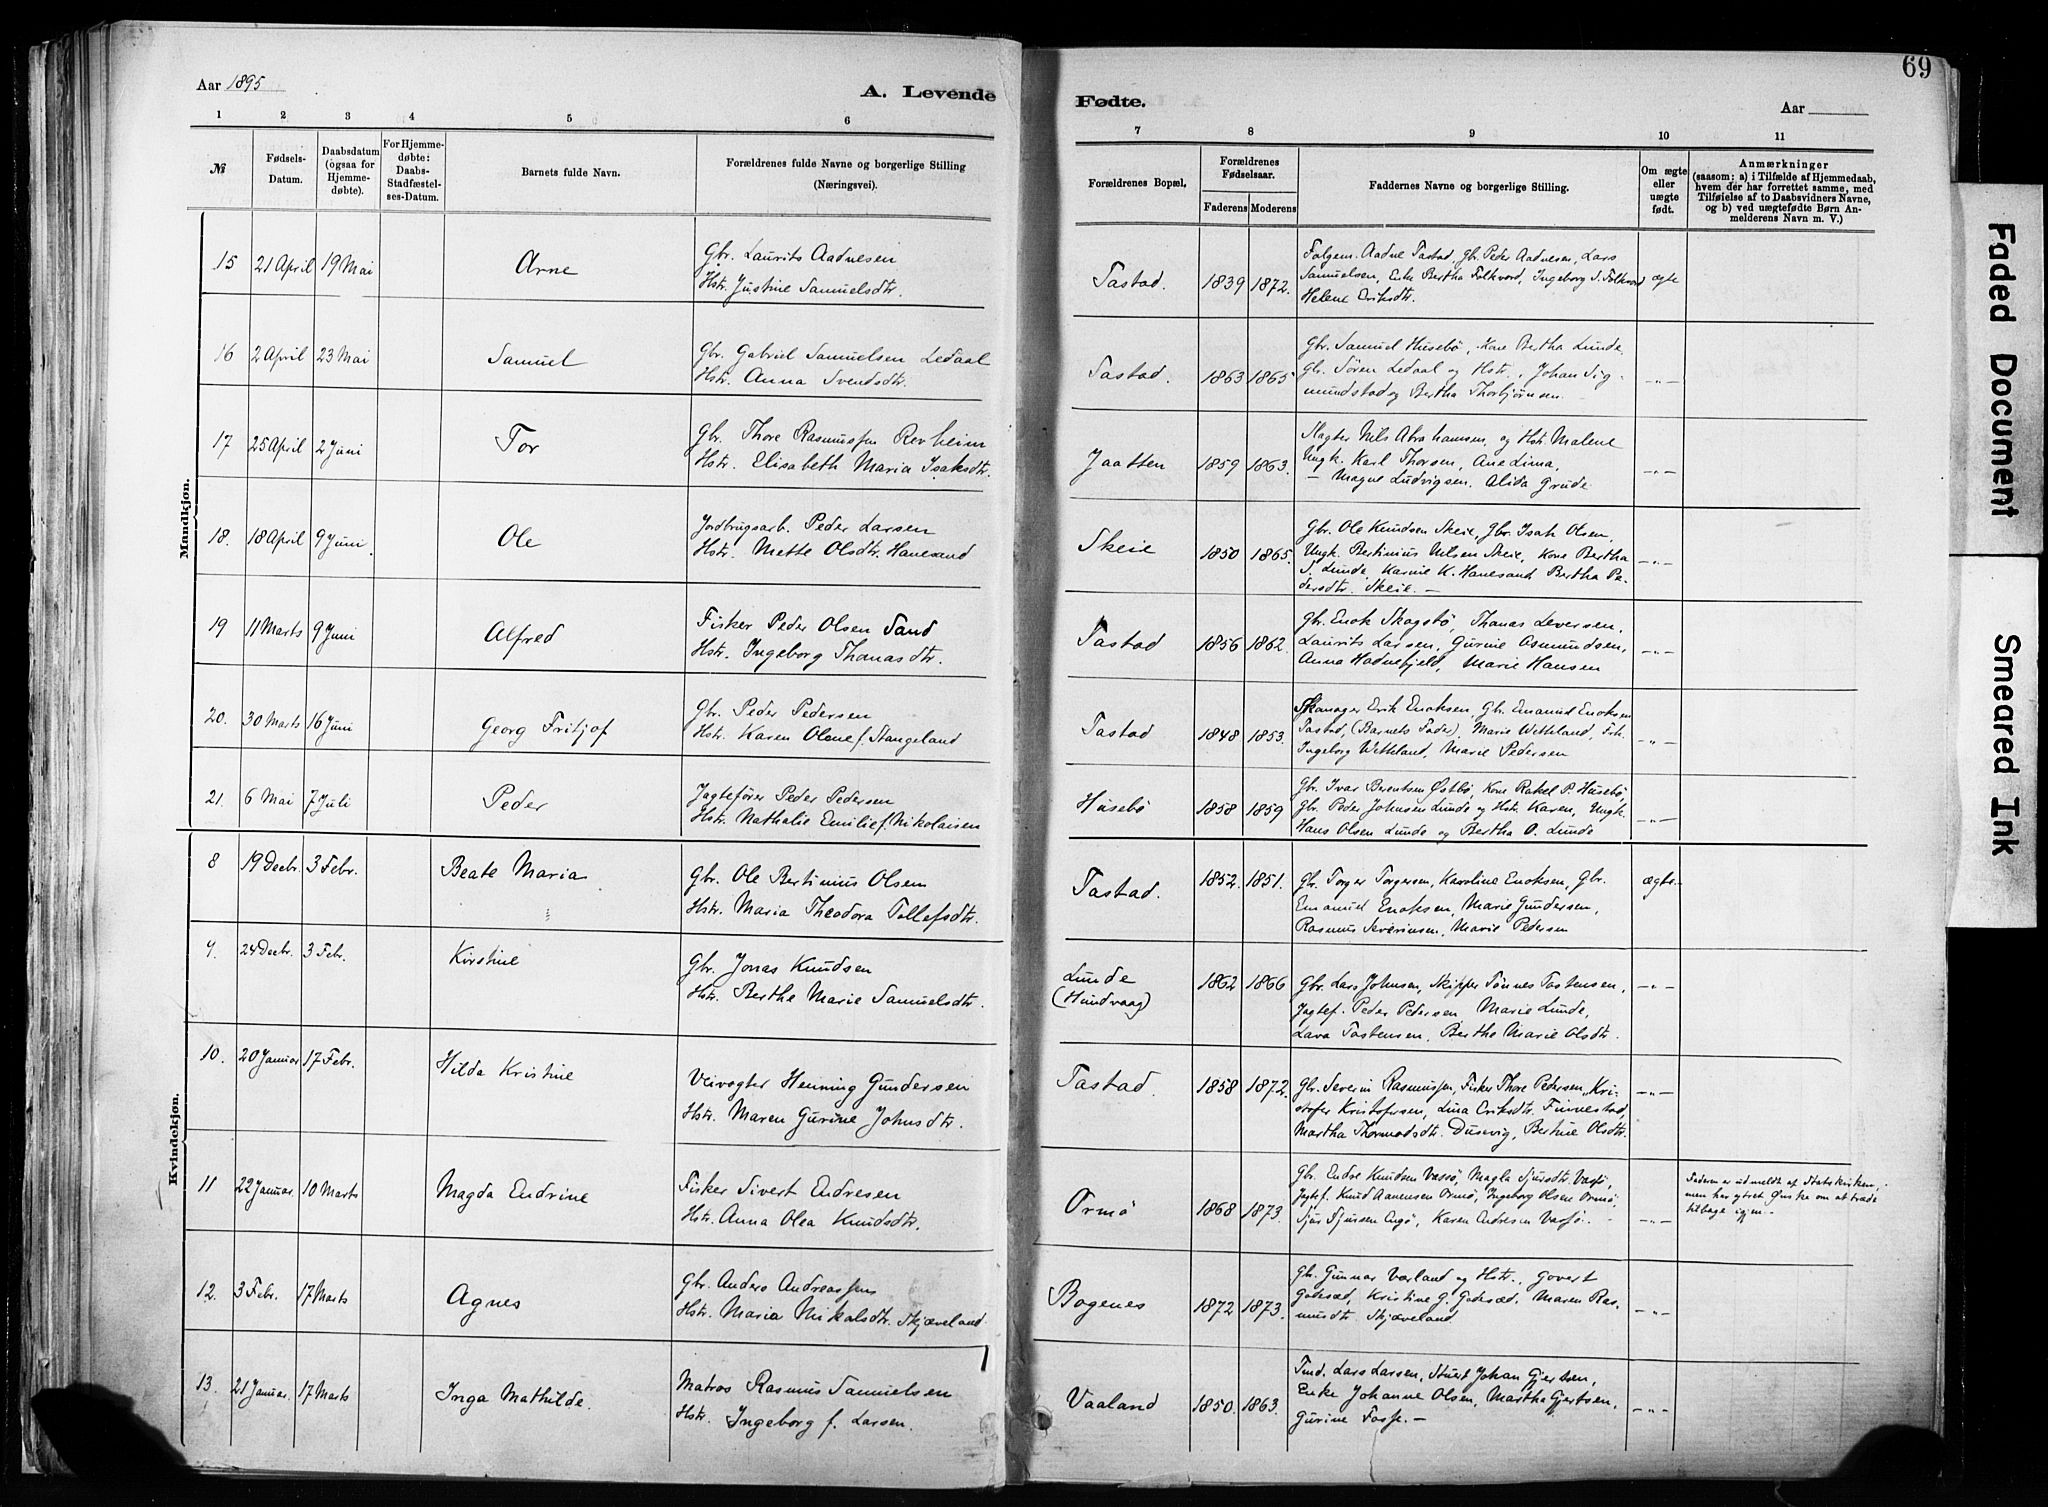 69
Aar 1895
A. Levende
Fødte.
Aar
1 2 3 4 5 6
7 8 9 10 11
№
Fødsels-
Datum.
Daabsdatum
(ogsaa for
Hjemme-
døbte).
For Hjemme-
døbte:
Daabs-
Stadfæstel-
ses-Datum.
Barnets fulde Navn.
Forældrenes fulde Navne og borgerlige Stilling
(Næringsvei).
Forældrenes Bopæl.
Forældrenes
Fødselsaar.
Faderens Moderens
Faddernes Navne og borgerlige Stilling.
Om ægte
eller
uægte
født.
Anmærkninger
(saasom: a) i Tilfælde af Hjemmedaab,
hvem der har forrettet samme, med
Tilføielse af to Daabsvidners Navne,
og b) ved uægtefødte Børn An-
melderens Navn m. V.)
Mandkjøn.
15 21 April 19 Mai Arne
Gbr. Laurits Aadnesen
Hstr. Justine Samuelsdtr.
Tastad. 1839 1872.
Folgem. Aadne Tastad, Gbr. Peder Aadnesen, Lars
Samuelsen, Enke Bertha Folkvord, Ingeborg S. Folkvord
Helene Eriksdtr.
ægte
16 2 April 23 Mai Samuel
Gbr. Gabriel Samuelsen Ledaal
Hstr. Anna Svendsdtr.
Tastad. 1863 1865
Gbr. Samuel Husebø, Kone Bertha Lunde,
Gbr. Sören Ledaal og Hstr., Johan Sig-
mundstad og Bertha Thorbjørnsen.
—"—
17 25 April 2 Juni Tor
Gbr. Thore Rasmussen Revheim
Hstr. Elisabeth Maria Isaksdtr.
Jaatten 1859 1863.
Slagter Nils Abrahamsen, og Hstr. Malene
Ungk. Karl Thorsen, Ane Lima,
— Magne Ludvigsen, Alida Grude
—"—
18. 18 April 9 Juni. Ole
Jordbrugsarb. Peder Larsen
Hstr. Mette Olsdtr. Hanesand
Skeie 1850 1865.
Gbr. Ole Knudsen Skeie, Gbr. Isak Olsen,
Ungk. Bertinius Nilsen Skeie, Kone Bertha
S. Lunde, Karine K. Hanesand Bertha Pe-
dersdtr. Skeie. —
—"—
19 11 Marts 9 Juni Alfred
Fisker Peder Olsen Sand
Hstr. Ingeborg Thanasdtr.
Tastad 1856 1862.
Gbr. Enok Skagsbø, Thanas Leversen,
Laurits Larsen, Gurine Osmundsen,
Anna Hadnefjeld, Marie Hansen
—"—
20. 30 Marts 16 Juni Georg Fritjof
Gbr. Peder Pedersen
Hstr. Karen Olene f. Stangeland
Tastad 1848 1853.
Skomager Erik Enoksen, Gbr. Emanuel Enoksen
Tastad, (Barnets Fader), Marie Wetteland, Frk.
Ingeborg Wetteland, Marie Pedersen
—"—
21. 6 Mai 7 Juli Peder
Jagtefører Peder Pedersen
Hstr. Nathalie Emilie f. Nikolaisen
Husebø 1858 1859
Gbr. Ivar Berentsen Østbø, Kone Rakel P. Husebø
Gbr. Peder Johnsen Lunde og Hstr. Karen, Ungk.
Hans Olsen Lunde og Bertha O. Lunde
—"—
Kvindekjøn.
8 19 Decbr. 3 Febr. Beate Maria
Gbr. Ole Bertinius Olsen
Hstr. Maria Theodora Tollefsdtr.
Tastad. 1852. 1851.
Gbr. Torger Torgersen, Karoline Enoksen, Gbr.
Emanuel Enoksen, Marie Gundersen,
Rasmus Severinsen, Marie Pedersen
ægte
9. 24 Decbr. 3 Febr. Kirstine
Gbr. Jonas Knudsen
Hstr. Berthe Marie Samuelsdtr.
Lunde
(Hundvaag)
1862 1866
Gbr. Lars Johnsen, Skipper Tönnes Tastensen,
Jagtef. Peder Pedersen Marie Lunde,
Lava Tastensen, Berthe Marie Olsdtr.
—"—
10. 20 Januar 17 Febr. Hilda Kristine
Veivogter Henning Gundersen
Hstr. Maren Gurine Johnsdtr.
Tastad. 1858 1872.
Gbr. Severin Rasmussen, Fisker Thore Pedersen, Kri-
stofer Kristofersen, Lina Eriksdtr. Finnestad,
Martha Thormodsdtr. Dusevig, Bertine Olsdtr.
—"—
11 22 Januar. 10 Marts Magda Endrine
Fisker Sivert Endresen
Hstr. Anna Olea Knudsdtr.
Ormø 1868 1873.
Gbr. Endre Knudsen Vasø, Magla Sjursdtr. Vasø,
Jagtef. Knud Aanensen Ormø, Ingeborg Olsen Ormø,
Sjur Sjursen Engø, Karen Andresen Vasø.
—"—
Faderen er udmeldt af Statskirken,
men har ytret Ønske om at træde
tilbage igjen.
12. 3 Febr. 17 Marts Agnes
Gbr. Anders Andreassen
Hstr. Maria Mikalsdtr. Skjæveland
Bogenes 1872 1873.
Gbr. Gunnar Varland og Hstr., Govert
Godesæd, Kristine G. Godesæd, Maren Ras-
musdtr. Skjæveland
—"—
13. 21 Januar. 17 Marts Inga Mathilde.
Matros Rasmus Samuelsen
Hstr. Ingeborg f. Larsen.
Vaaland 1850. 1863.
Tmd. Lars Larsen, Stuert Johan Gjertsen,
Enke Johanne Olsen, Martha Gjertsen,
Gurine Fosse. —
—"—
Faded Document
Smeared Ink